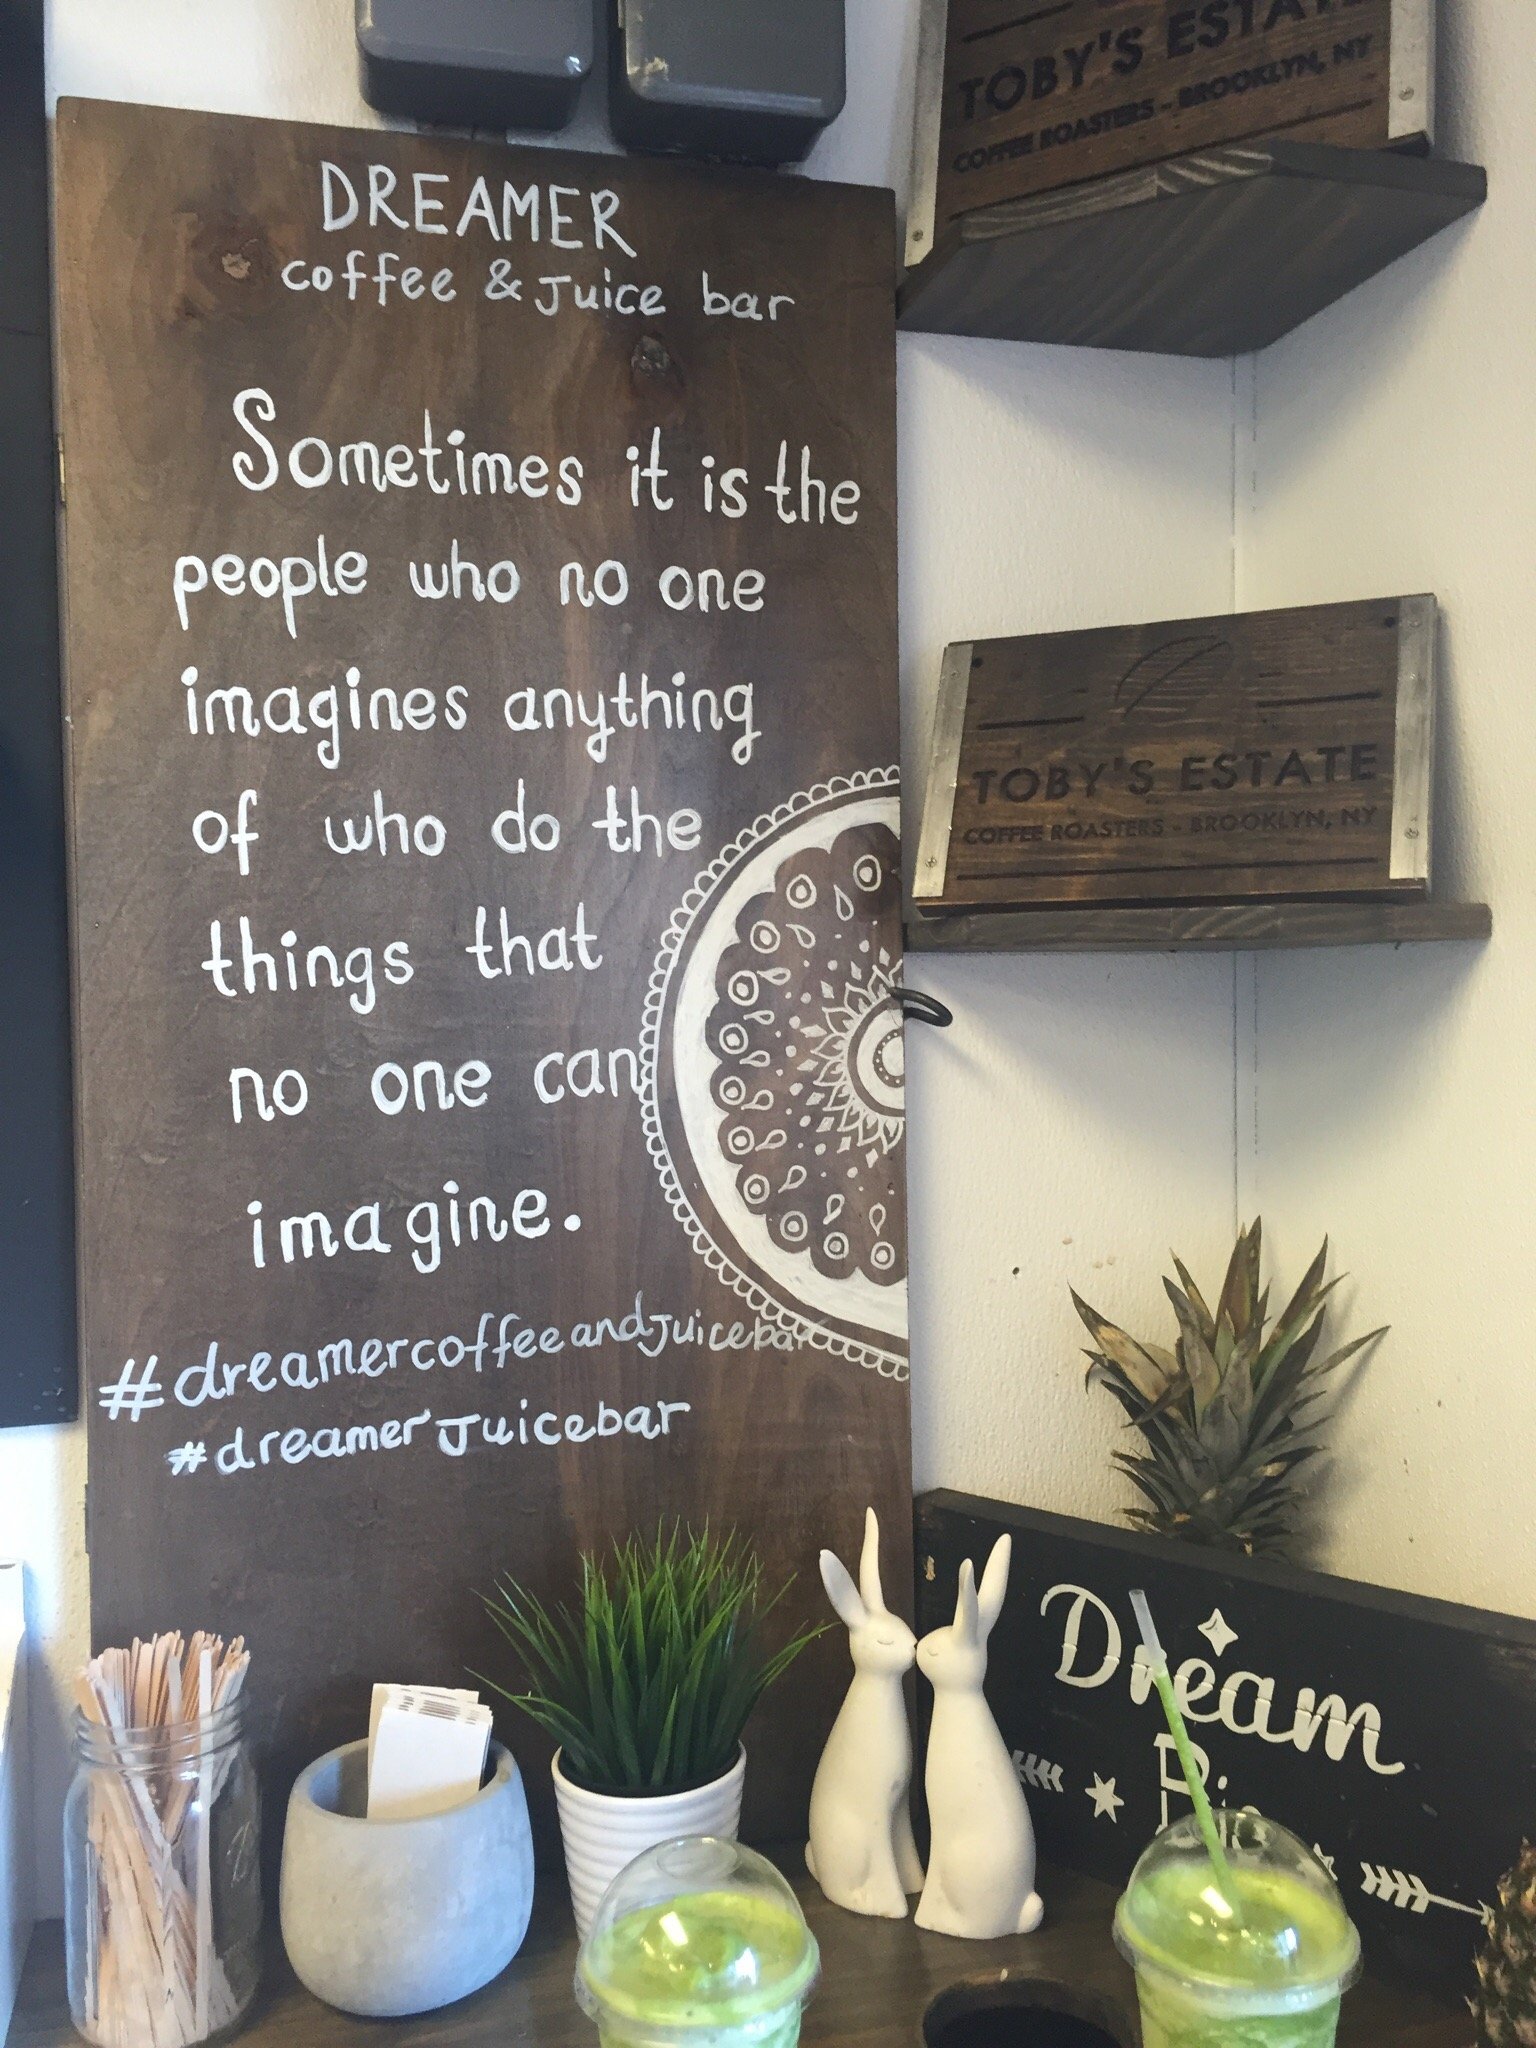 DREAMER
coffee & Juice bar
Sometimes it is the
people who no one
imagines anything
of who do the
things that
no one can
imagine.
#dreamercoffeeandJuicebar
#dreamerJuicebar
TOBY'S ESTATE
COFFEE ROASTERS - BROOKLYN, NY
TOBY'S ESTATE
COFFEE ROASTERS - BROOKLYN, NY
Dream